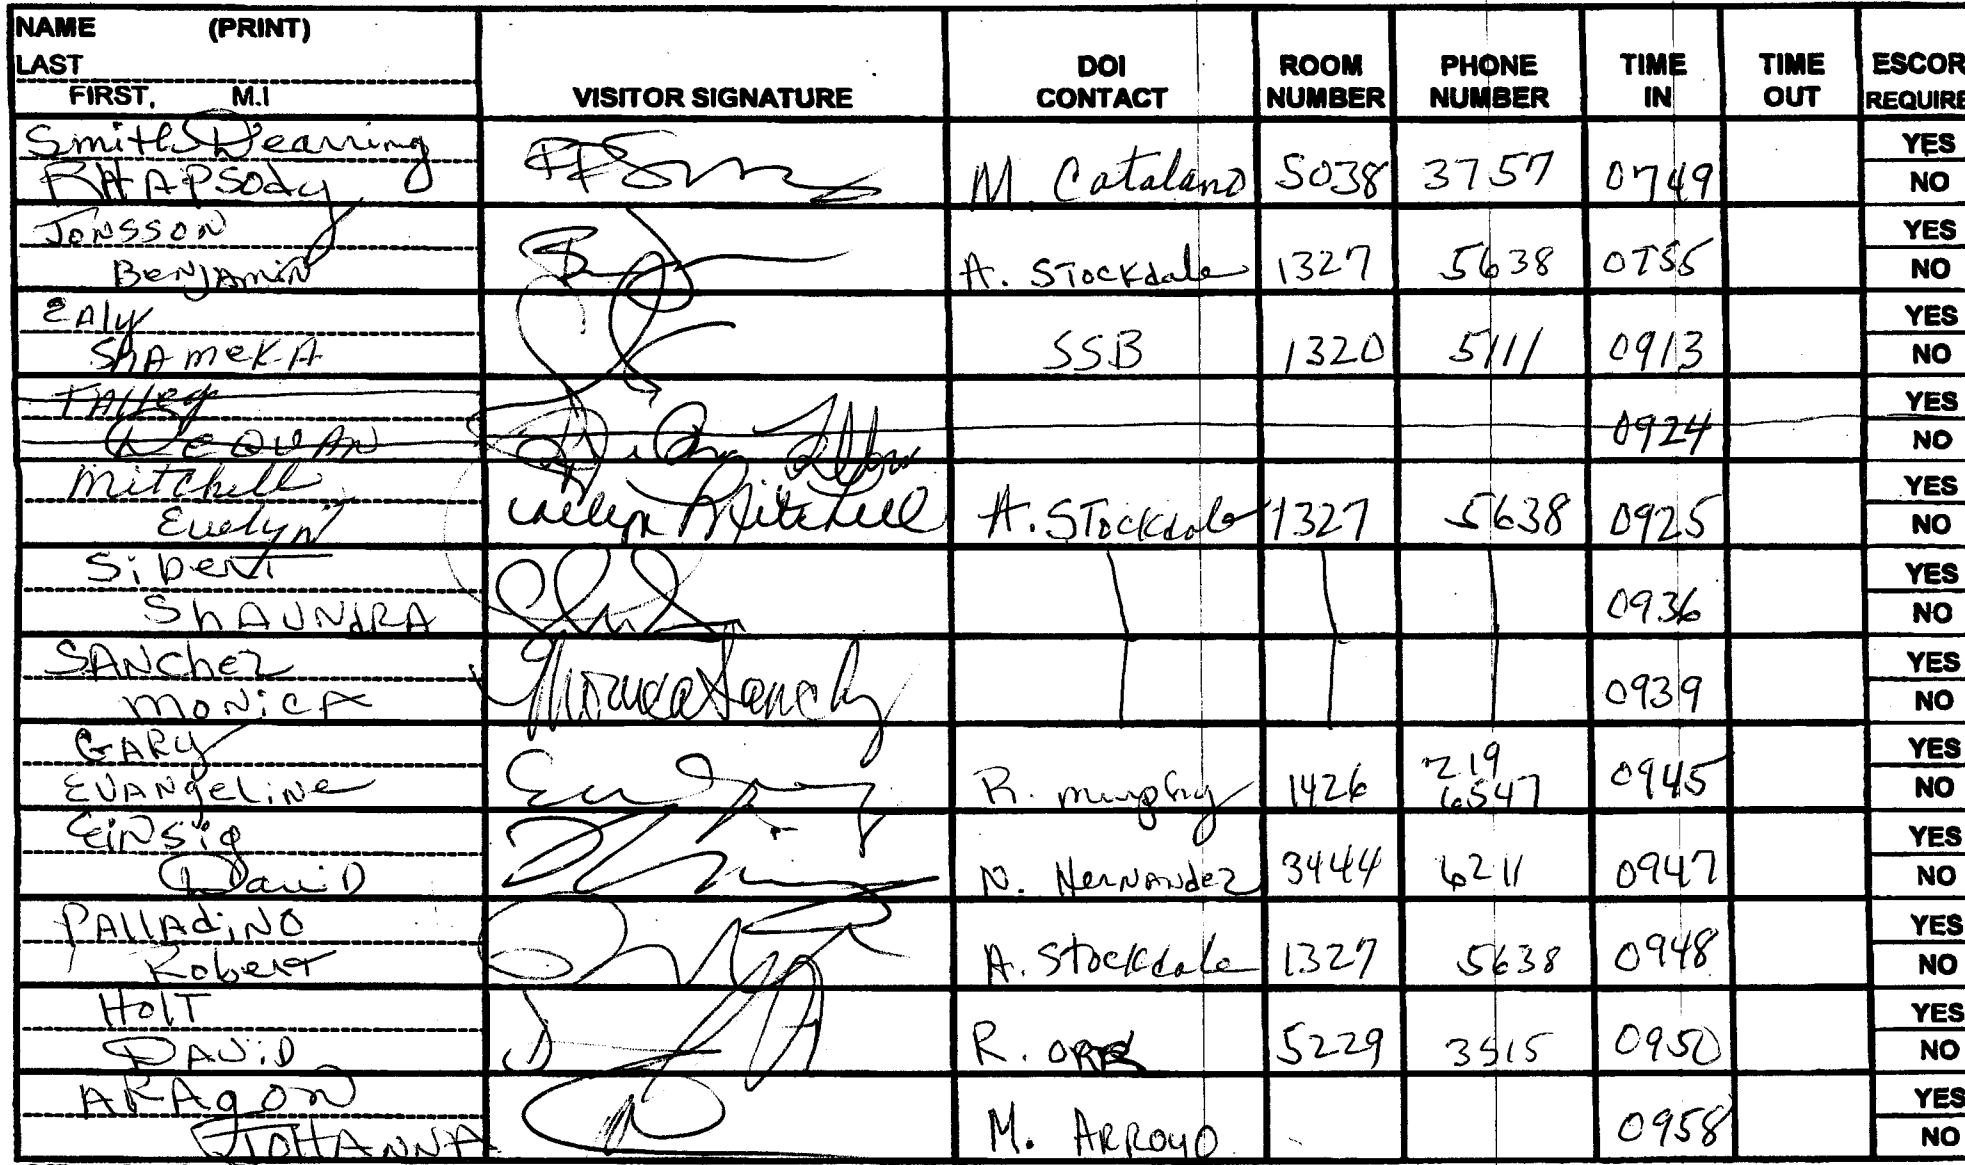 NAME (PRINT)
LAST
FIRST, M.I
VISITOR SIGNATURE
DOI CONTACT
ROOM NUMBER
PHONE NUMBER
TIME IN
TIME OUT
ESCOR
REQUIRE
Smith Dearring
RHAPSody
M. Catalano 5038 3757 0749
YES
NO
JONSSON
BeNJAmiN
A. STockdale 1327 5638 0755
YES
NO
EAly
ShAmeKA
SSB 1320 5111 0913
YES
NO
TAlley
DeQUAN
0924
YES
NO
Mitchell
Evelyn
Evelyn Mitchell
A. STockdale 1327 5638 0925
YES
NO
SiberT
ShAUNdRA
0936
YES
NO
SANchez
MONiCA
Monica Sanchez
0939
YES
NO
GARY
EVANgeLiNe
R. Murphy 1426 219 6547 0945
YES
NO
EiNSig
DaviD
N. HerNANdez 3444 6211 0947
YES
NO
PAllAdiNO
Robert
A. Stockdale 1327 5638 0948
YES
NO
HolT
DAViD
R. ORR 5229 3515 0950
YES
NO
ARAgon
JOHANNA
M. ARROYO 0958
YES
NO